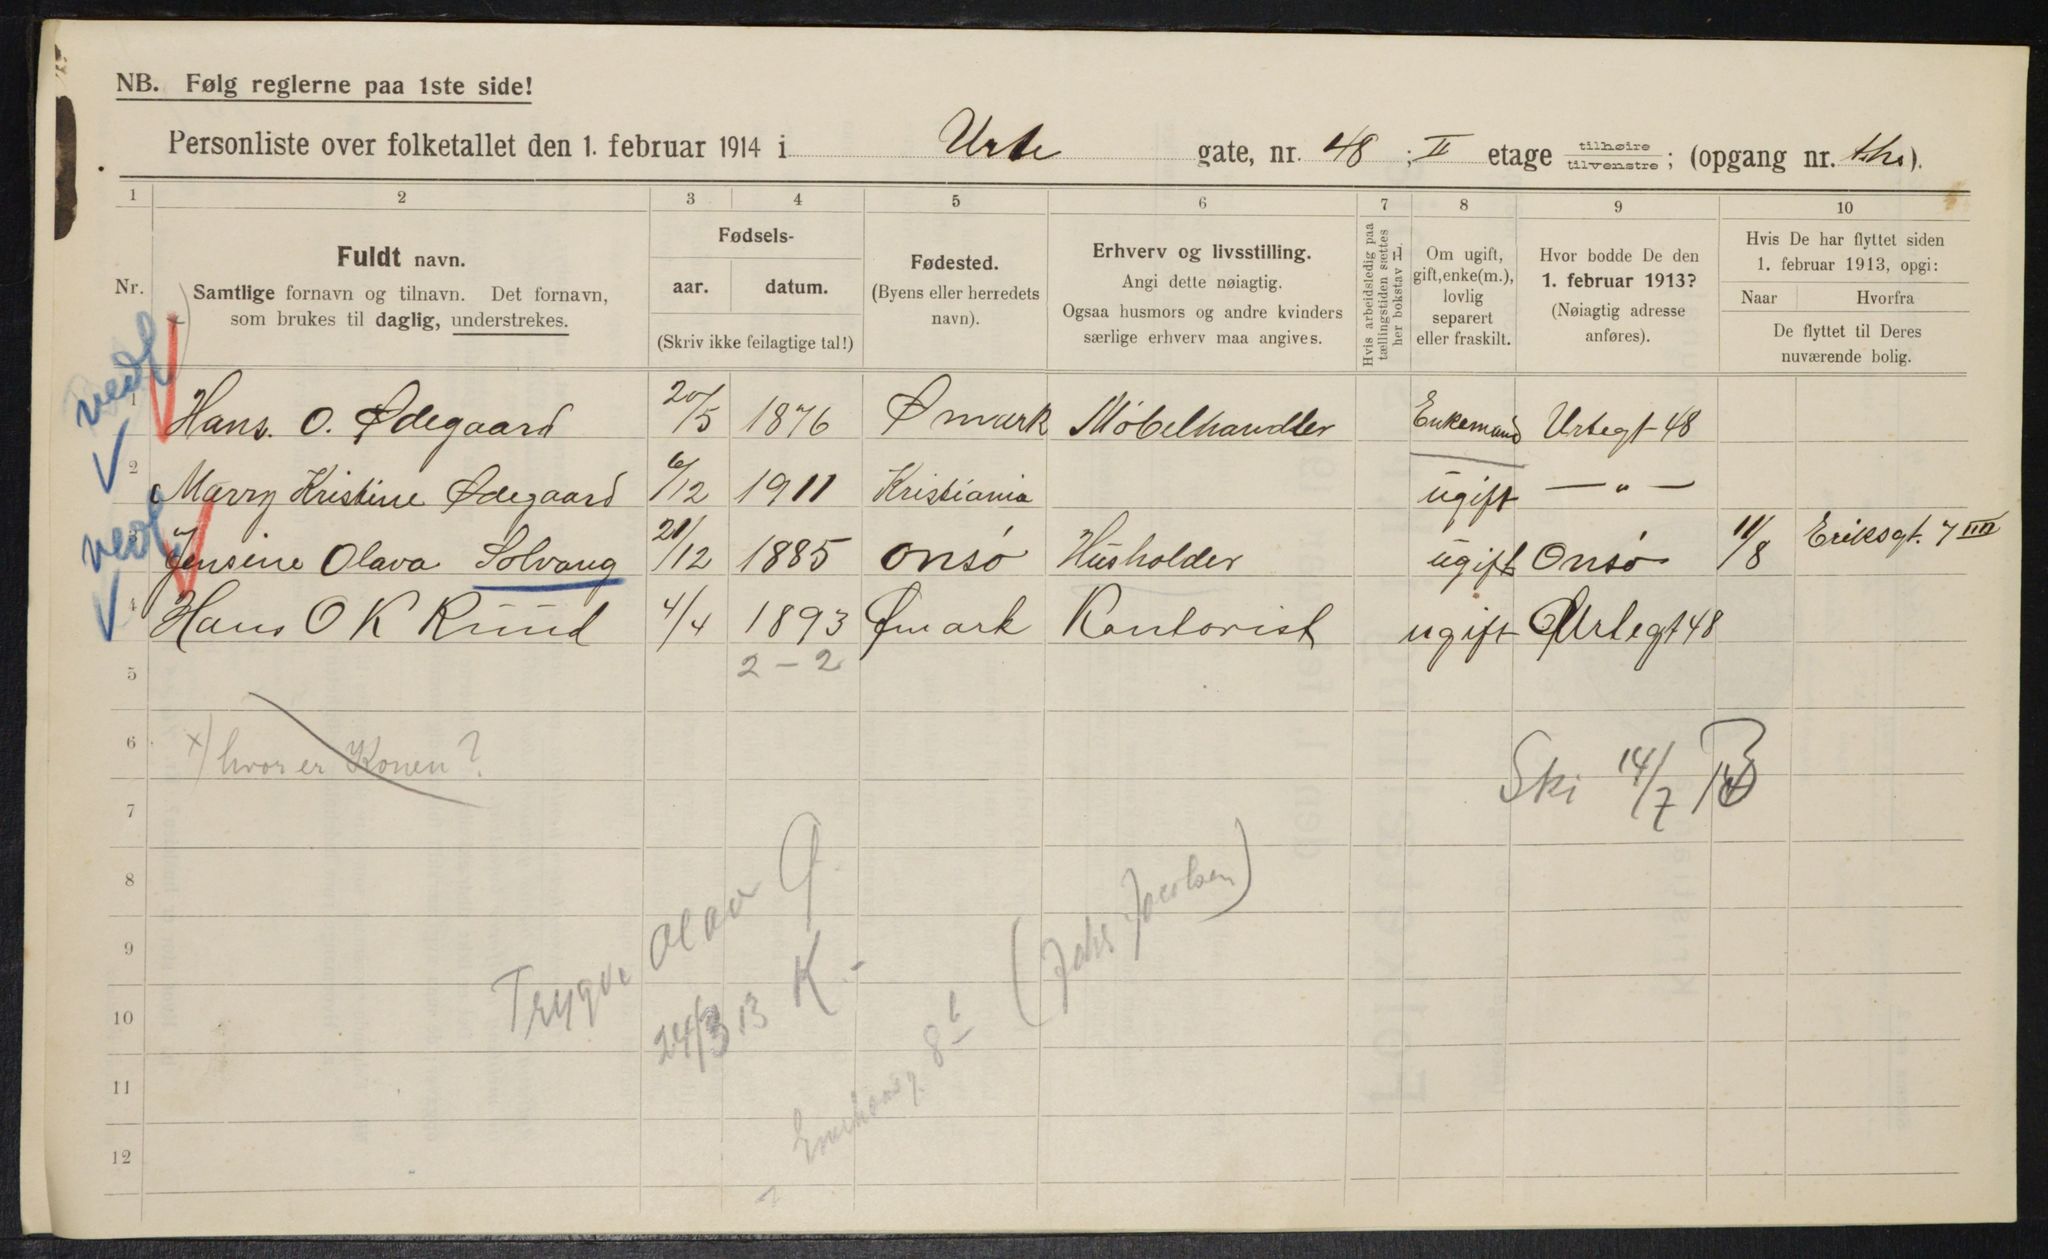 NB. Følg reglerne paa 1ste side!
Personliste over folketallet den 1. februar 1914 i Urte gate, nr. 48 ; II etage tilhøire tilvenstre ; (opgang nr. ).
1 2 3 4 5 6 7 8 9 10
Nr.
Fuldt navn.
Samtlige fornavn og tilnavn. Det fornavn,
som brukes til daglig, understrekes.
Fødsels-
aar. datum.
(Skriv ikke feilagtige tal!)
Fødested.
(Byens eller herredets
navn).
Erhverv og livsstilling.
Angi dette nøiagtig.
Ogsaa husmors og andre kvinders
særlige erhverv maa angives.
Hvis arbeidsledig paa
tællingstiden sættes
her bokstav L.
Om ugift,
gift, enke(m.),
lovlig
separert
eller fraskilt.
Hvor bodde De den
1. februar 1913?
(Nøiagtig adresse
anføres).
Hvis De har flyttet siden
1. februar 1913, opgi:
Naar Hvorfra
De flyttet til Deres
nuværende bolig.
vedl
1 Hans. O. Ødegaard 20/5 1876 Ømark Møbelhandler Enkemand Urtegt 48
2 Marry Kristine Ødegaard 6/12 1911 Kristiania ugift — " —
vedl
3 Jensine Olava Solvang 21/12 1885 Onsø Husholder ugift Onsø 11/8 Eriksgt. 7 III
4 Hans O K Ruud 4/4 1893 Ømark Kontorist ugift Urtegt 48
2 - 2
5
6 x) hvor er Konen?
Ski 14/7
7
8
9
10
11
12
Trygve Olav Ø.
24/3 13 K.-
8 b (Johs Jacobsen)